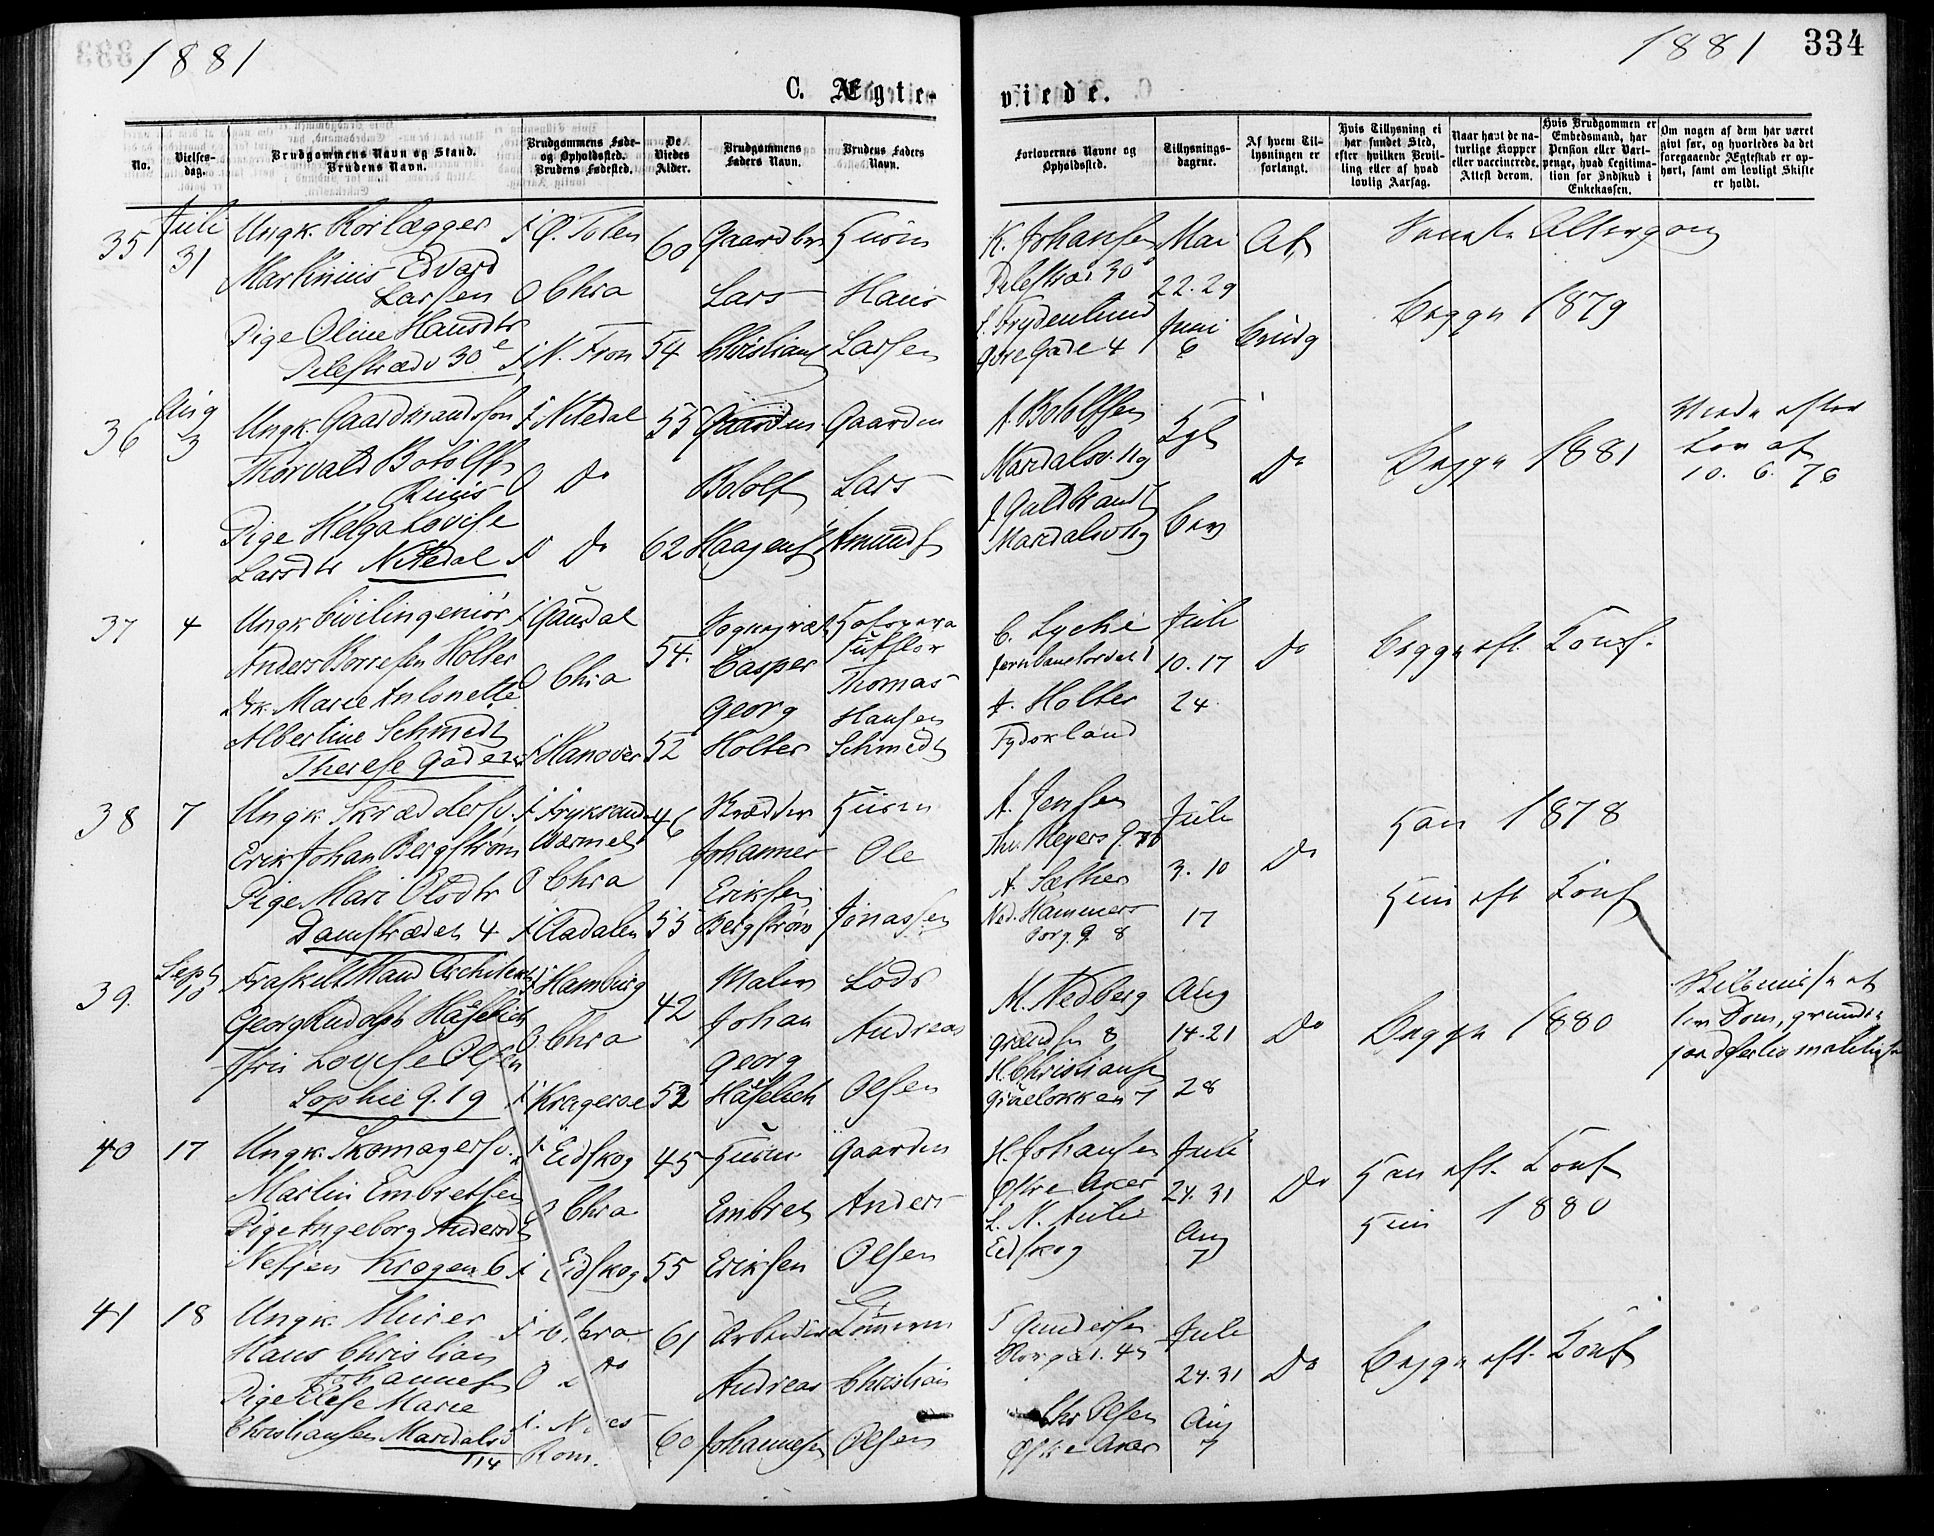 1881
1881 334
C. Ægte-
viede.
No.
Vielses-
dag.
Brudgommens Navn og Stand.
Brudens Navn.
Brudgommens Føde-
og Opholdssted.
Brudens Fødested.
De
Viedes
Alder.
Brudgommens
Faders Navn.
Brudens Faders
Navn.
Forlovernes Navne og
Opholdssted.
Tillysnings-
dagene.
Af hvem Til-
lysningen er
forlangt.
Hvis Tillysning ei
har fundet Sted,
efter hvilken Bevil-
ling eller af hvad
lovlig Aarsag.
Naar havt de na-
turlige Kopper
eller vaccinerede.
Attest derom.
Hvis Brudgommen er
Embedsmand, har
Pension eller Vart-
penge, hvad Legitima-
tion for Indskud i
Enkekassen.
Om nogen af dem har været
givt før, og hvorledes da det
foregaaende Ægteskab er op-
hørt, samt om lovligt Skifte
er holdt.
35 Juli
31
Ungk.
Martinius Edvard
Larsen
Pige Oline Hansdtr
Pilestræde 30 e
f Ø. Toten
O Chra
f N. Fron
60
54
Gaardbr
Lars
Christians
Husm
Hans
Larsen
K. Johansen
Pilestræd 30
Frydenlund
Øvre Gade 4
Mai
22. 29
Juni
6
Af
Brudg
Altergang
Begge 1879
36 Aug
3
Ungk. Gaardmandssøn
Thorvald Botolfs
Pige Helga Lovise
Larsdtr Nitedal
f Nitedal
O Do
f Do
55
62
Gaardm
Botolf
Haagens
Gaardm
Lars
Amunds
A. Botolfsen
Maridalsv. 119
J. Guldbrands
Maridalsv 119
Do
Begge 1881
Viede efter
Lov af
10. 6. 76
37 4
Ungk Civilingeniør
Anders Borresen Holter
Frk. Marie Antonette
Albertine Schmedt
Therese Gade 22
f Gausdal
O Chra
f Hanover
54.
52
Casper
Georg
Holter
Thomas
Hansen
Schmedt
C. Lyche
Jernbanetorvet 1
A. Holter
Tydskland
Juli
10. 17
24.
Do
Begge eft. Konf.
38 7
Ungk. Skræddersv.
Erik Johan Bergstrøm
Pige Mari Olsdtr
Damstrædet 4
f Fryksende
Wærmel
O Chra
f Aadalen
46
55
Skrædder
Johannes
Eriksen
Bergstrøm
Husm
Ole
Jonassen
A. Jensen
Thv. Meyers G.
A. Sæther
Ned. Hammers
borg. G. 8
Juli
3. 10
17
Do
Han 1878
Hun eft Konf
39. Sept
10
Fraskilt Mand Architekt
Georg Rudolph Häselich
Louise Olsen
Sophie G. 19
f Hamburg
O. Chra
f Kragerøe
42
52
Maler
Johan
Georg
Häselich
Lods
Andreas
Olsen
M. Nedberg
Grændsen 8
H. Christiansen
Grüneløkken 7
Aug
14. 21
28
Do
Begge 1880
40 17
Ungk. Skomagersv.
Martin Embretsen
Pige Ingeborg Andersdt
Krogen 6
f Eidskog
O Chra
f Eidskog
45
55
Husm
Embret
Eriksen
Gaardm
Anders
Olsen
H. Johansen
Østre Aker
Eidskog
Juli
24. 31
Aug
7
Do
Han eft. Konf
Hun 1880
41 18
Ungk. Murer
Hans Christian
Johannes
Pige Elese Marie
Christiansen Maridalsv
114
f Chra
O Do
f. Nes
Rom.
61
60
Arbeider
Andreas
Johannesen
Tømmerm
Christian
Olsen
T Gundersen
Chr Olsen
Østre Aker
Juli
24. 31
Aug
7
Do
Begge eft. Konf